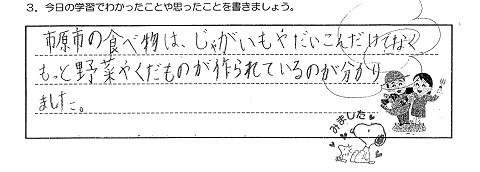 3．今日の学習でわかったことや思ったことを書きましょう。
市原市の食べ物は、じゃがいもやだいこんだけでなく
もっと野菜やくだものが作られているのが分かり
ました。
みました